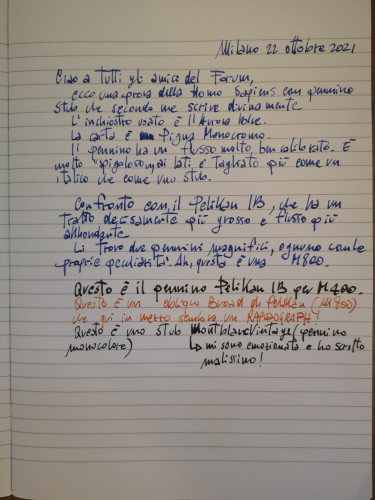 Milano 22 ottobre 2021
Ciao a tutti gli amici del Forum,
ecco una prova della Homo Sapiens con pennino
stub che secondo me scrive divinamente.
L'inchiostro usato è l'Aurora blue.
La carta è Pigna Monocromo.
Il pennino ha un flusso molto ben calibrato. È
molto "spigoloso" ai lati, è tagliato più come un
italico che come uno stub.
Confronto con il Pelikan IB, che ha un
tratto decisamente più grosso e flusso più
abbondante.
Li trovo due pennini magnifici, ognuno con le
proprie peculiarità. Ah, questa è una M800.
Questo è il pennino Pelikan IB per M400.
Questo è un obliquo Broad di Pelikan (M400)
che qui in mezzo sembra un RAPIDOGRAPH!
Questo è uno stub Montblanc vintage (pennino
monocolore) ↳ mi sono emozionata e ho scritto
malissimo!